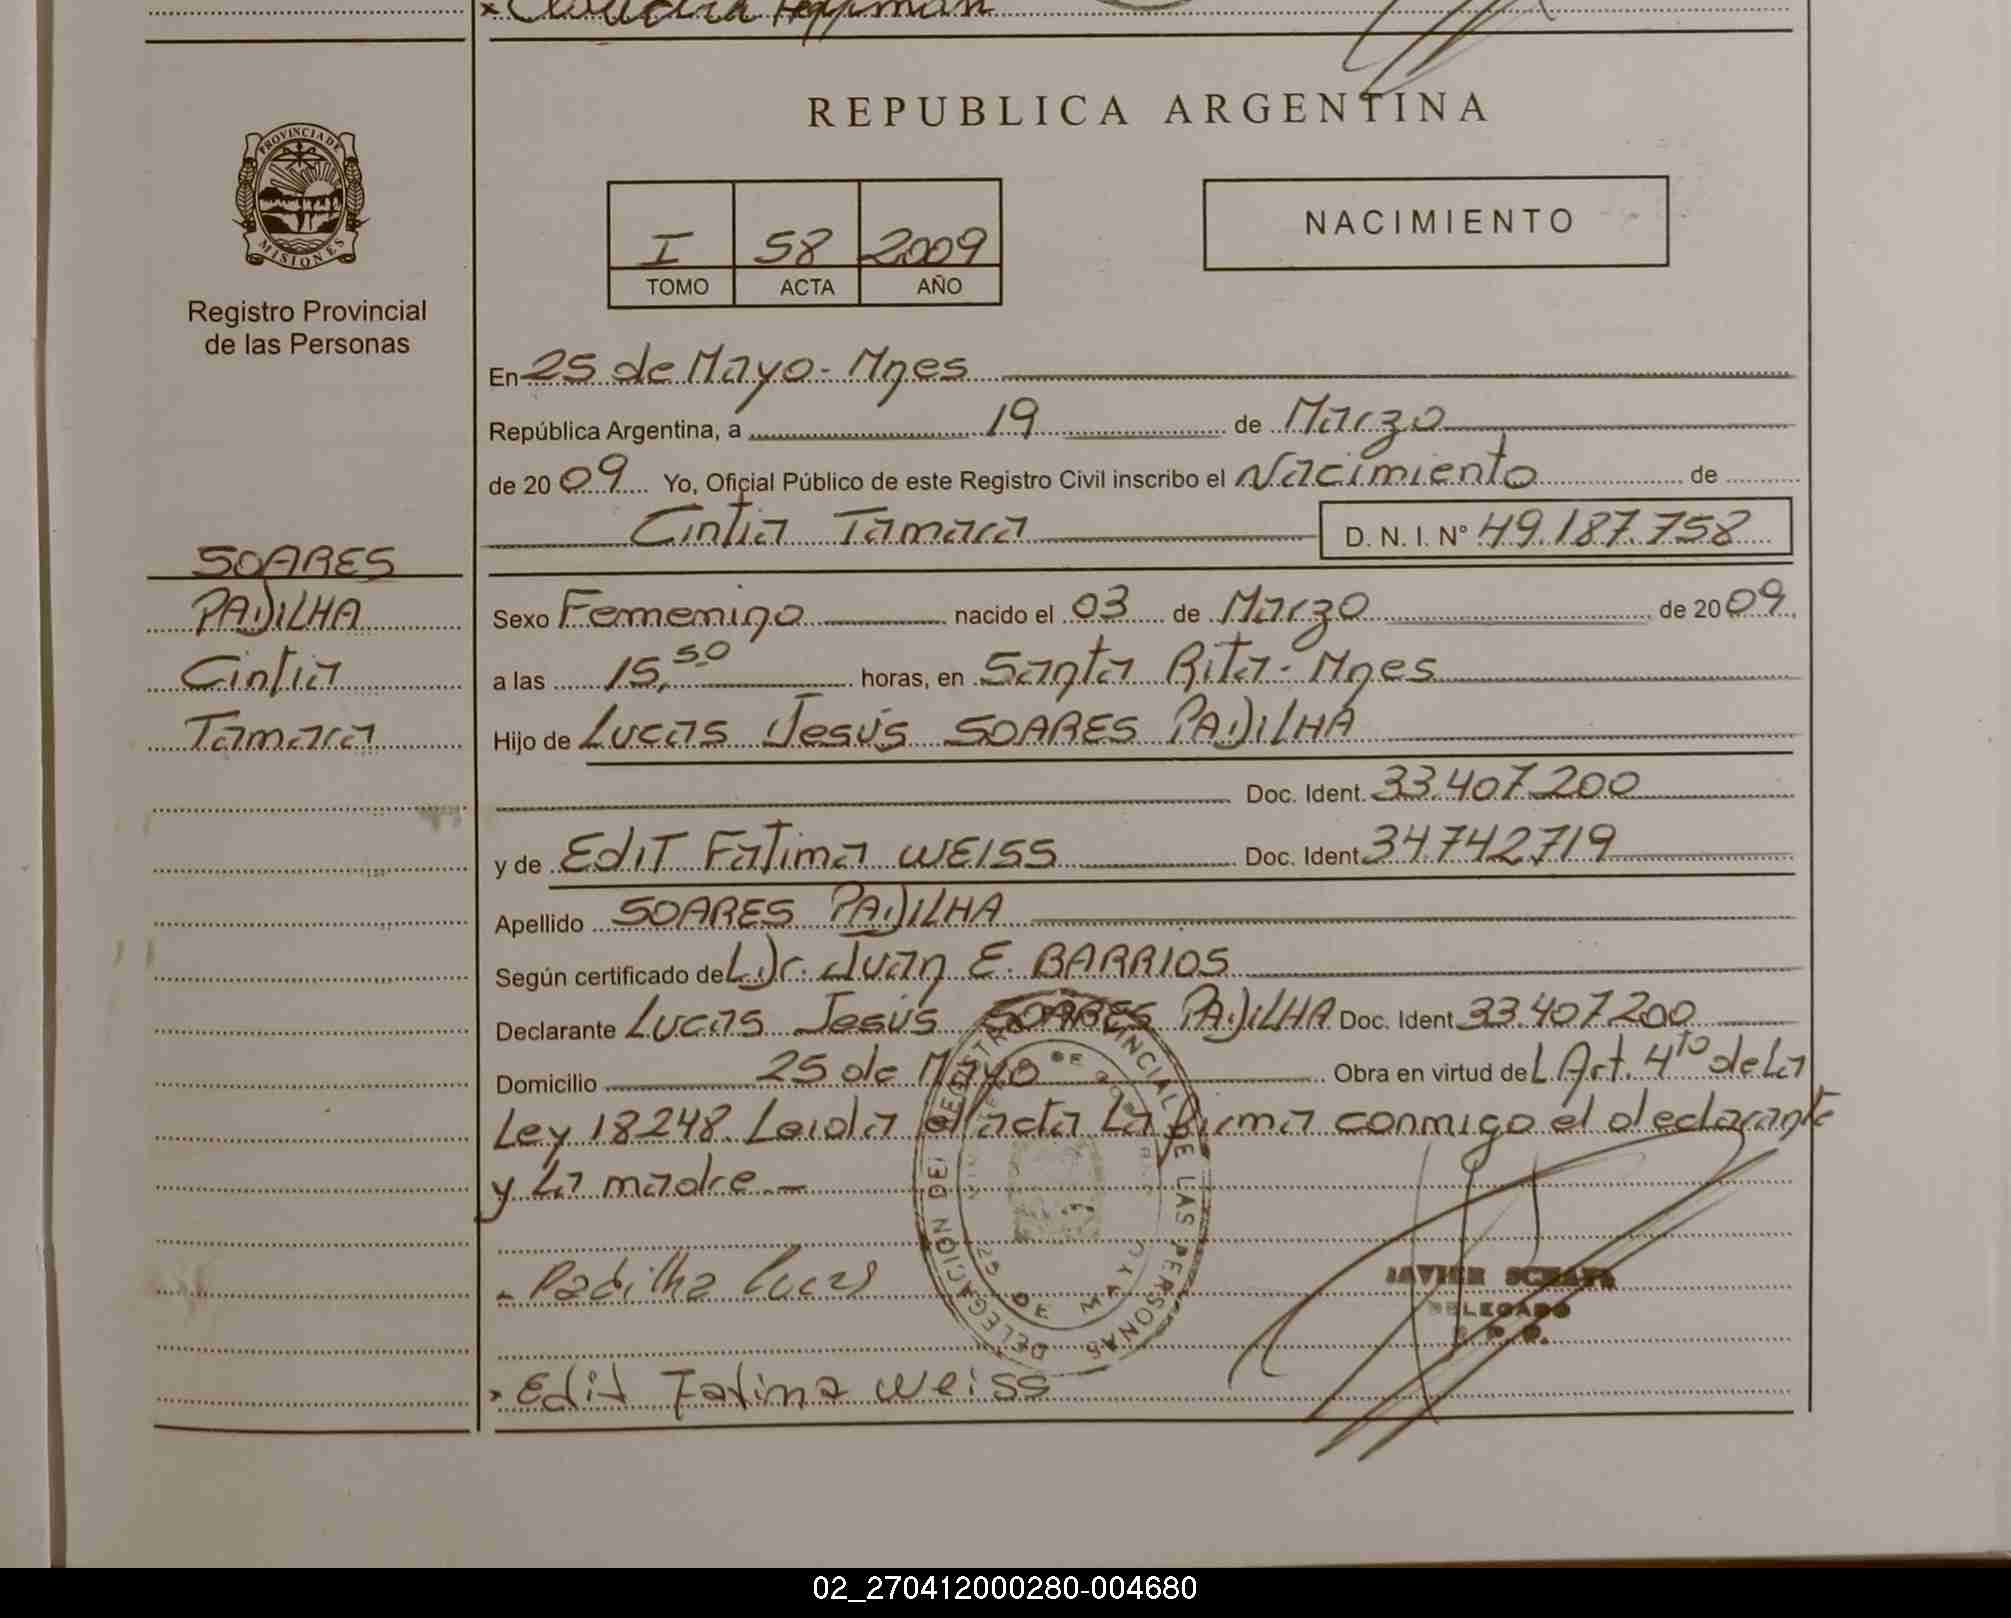 × Claudia
REPUBLICA ARGENTINA
PROVINCIA DE
MISIONES
Registro Provincial
de las Personas
I 58 2009
TOMO ACTA AÑO
NACIMIENTO
En 25 de Mayo - Mnes
República Argentina, a 19 de Marzo
de 20 09 Yo, Oficial Público de este Registro Civil inscribo el Nacimiento de
Cintia Tamara D. N. I. Nº 49.187.758
SOARES
PADILHA
Cintia
Tamara
Sexo Femenino nacido el 03 de Marzo de 20 09
a las 15,50 horas, en Santa Rita - Mnes
Hijo de Lucas Jesús SOARES PADILHA
Doc. Ident. 33.407.200
y de Edit Fatima WEISS Doc. Ident. 34.742.719
Apellido SOARES PADILHA
Según certificado del Dr. Juan E. BARRIOS
Declarante Lucas Jesús SOARES PADILHA Doc. Ident 33.407.200
Domicilio 25 de Mayo Obra en virtud del Art. 4to de la
Ley 18248. Leida el acta la firma conmigo el declarante
y la madre. –
DELEGACION DEL REGISTRO PROVINCIAL DE LAS PERSONAS
25 DE MAYO
- Padilha Lucas
JAVIER
DELEGADO
× Edit Fatima Weiss
02_270412000280-004680